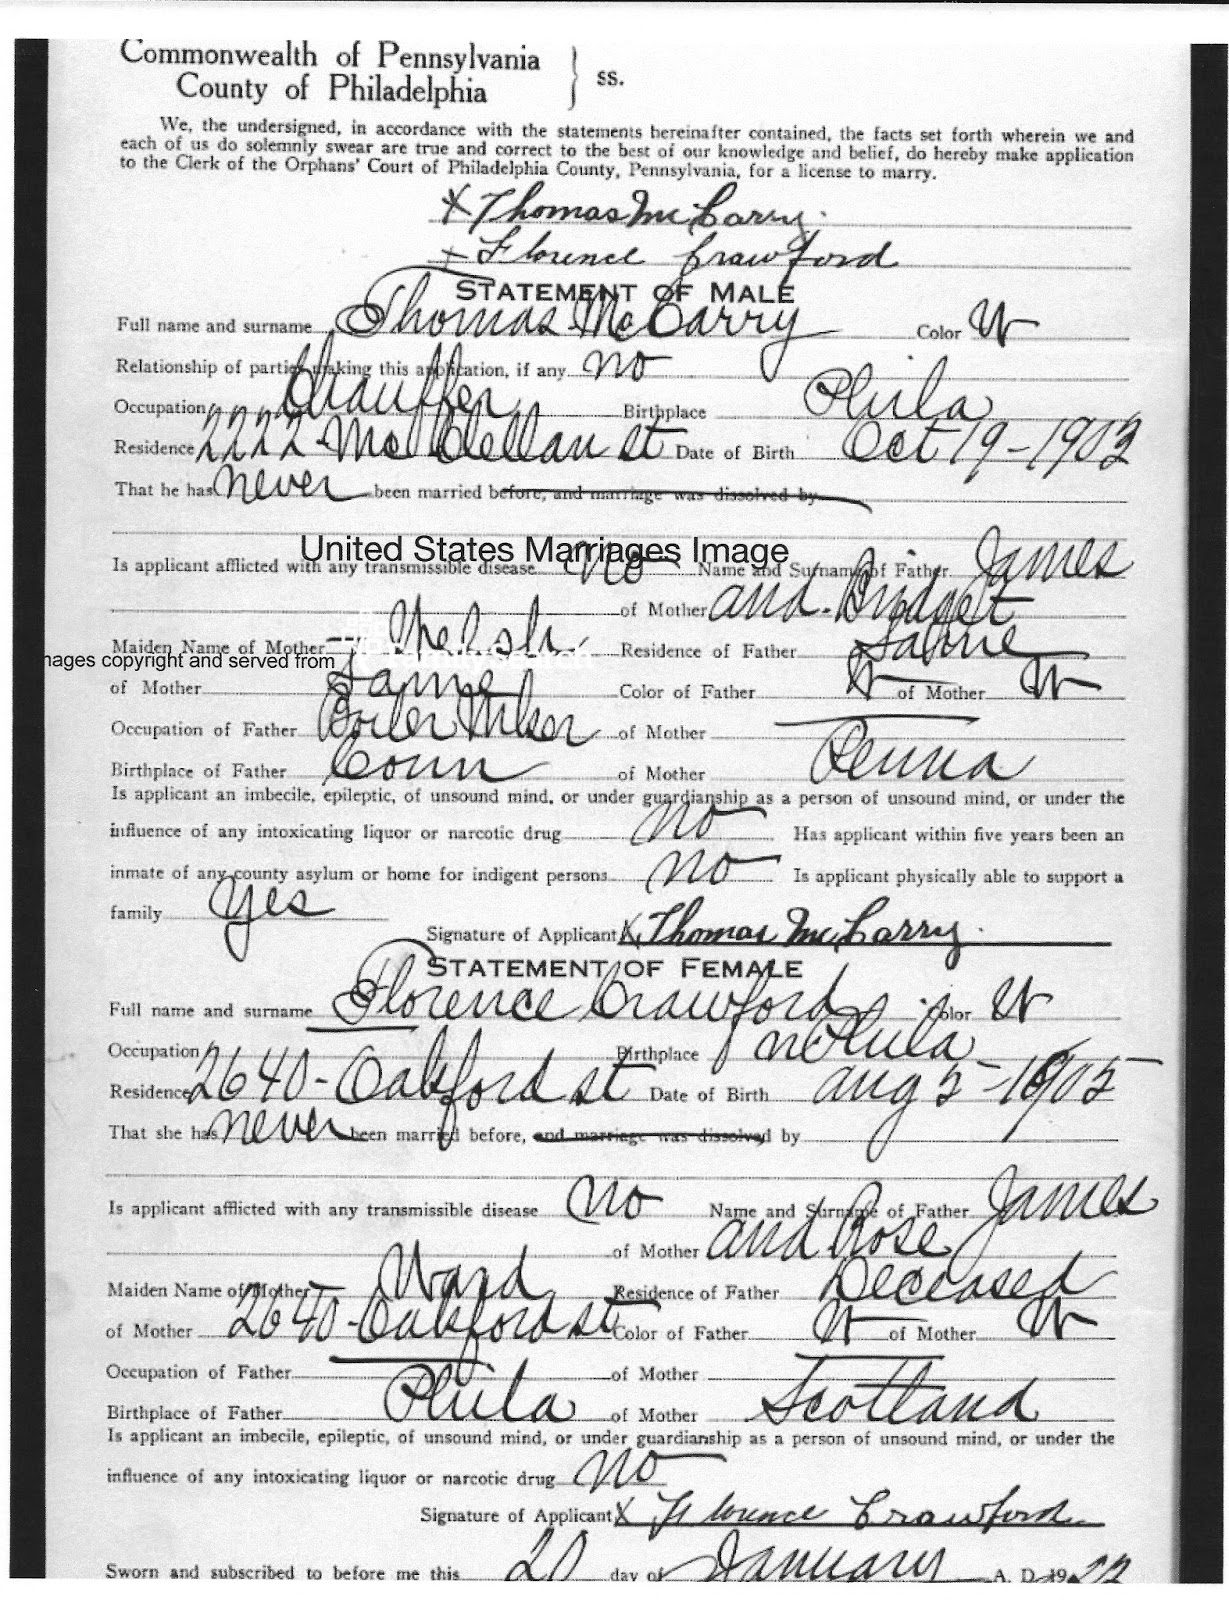 Commonwealth of Pennsylvania
County of Philadelphia } ss.
We, the undersigned, in accordance with the statements hereinafter contained, the facts set forth wherein we and
each of us do solemnly swear are true and correct to the best of our knowledge and belief, do hereby make application
to the Clerk of the Orphans' Court of Philadelphia County, Pennsylvania, for a license to marry.
X Thomas McCarry.
X Florence Crawford
STATEMENT OF MALE
Full name and surname Thomas McCarry Color W
Relationship of parties making this application, if any no
Occupation Chauffer Birthplace Phila
Residence 2222 - McClellan St Date of Birth Oct 19 - 1903
That he has never been married before, and marriage was dissolved by
United States Marriages Image
Is applicant afflicted with any transmissible disease no Name and Surname of Father James
of Mother and Bridget
Maiden Name of Mother Residence of Father Same
mages copyright and served from FamilySearch
of Mother Same Color of Father W of Mother W
Occupation of Father Boiler Mker of Mother —
Birthplace of Father Conn of Mother Penna
Is applicant an imbecile, epileptic, of unsound mind, or under guardianship as a person of unsound mind, or under the
influence of any intoxicating liquor or narcotic drug no Has applicant within five years been an
inmate of any county asylum or home for indigent persons no Is applicant physically able to support a
family yes
Signature of Applicant X Thomas McCarry.
STATEMENT OF FEMALE
Full name and surname Florence Crawford Color W
Occupation — Birthplace Phila
Residence 2640 - Oakford st Date of Birth aug 5 - 1905
That she has never been married before, and marriage was dissolved by
Is applicant afflicted with any transmissible disease no Name and Surname of Father James
of Mother and Rose
Maiden Name of Mother Ward Residence of Father Deceased
of Mother 2640 - Oakford st Color of Father W of Mother W
Occupation of Father — of Mother —
Birthplace of Father Phila of Mother Scotland
Is applicant an imbecile, epileptic, of unsound mind, or under guardianship as a person of unsound mind, or under the
influence of any intoxicating liquor or narcotic drug no
Signature of Applicant X Florence Crawford
Sworn and subscribed to before me this 20 day of January A. D. 19